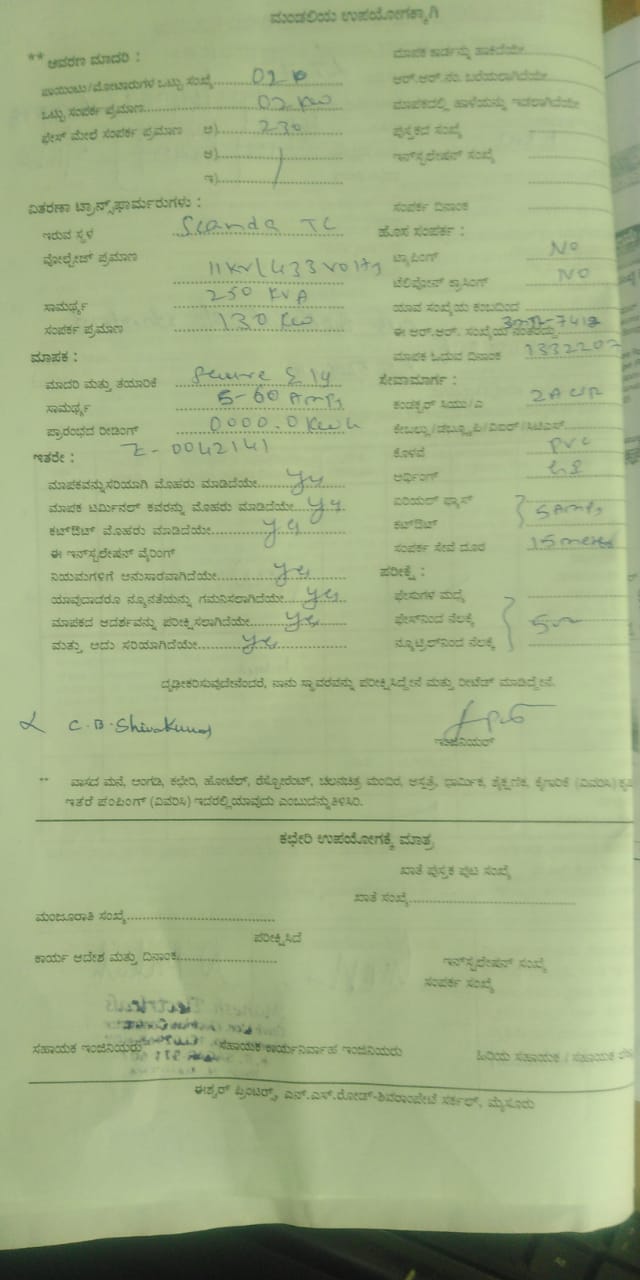 ಮಂಡಲಿಯ ಉಪಯೋಗಕ್ಕಾಗಿ
** ಆವರಣ ಮಾದರಿ :
ಪಾಯಿಂಟು/ಮೋಟಾರುಗಳ ಒಟ್ಟು ಸಂಖ್ಯೆ
ಒಟ್ಟು ಸಂಪರ್ಕ ಪ್ರಮಾಣ 02 KW
ಫೇಸ್ ಮೇಲೆ ಸಂಪರ್ಕ ಪ್ರಮಾಣ ಅ) 230
ಆ)
ಇ)
ವಿತರಣಾ ಟ್ರಾನ್ಸ್‌ಫಾರ್ಮರುಗಳು :
ಇರುವ ಸ್ಥಳ Scanda TC
ವೋಲ್ಟೇಜ್ ಪ್ರಮಾಣ 11KV/433 Volts
ಸಾಮರ್ಥ್ಯ 250 KVA
ಸಂಪರ್ಕ ಪ್ರಮಾಣ 130 KW
ಮಾಪಕ :
ಮಾದರಿ ಮತ್ತು ತಯಾರಿಕೆ
ಸಾಮರ್ಥ್ಯ 5-60 Amps
ಪ್ರಾರಂಭದ ರೀಡಿಂಗ್ 0000.0 Kwh
ಇತರೇ : Z-0042141
ಮಾಪಕವನ್ನು ಸರಿಯಾಗಿ ಮೊಹರು ಮಾಡಿದೆಯೇ yes
ಮಾಪಕ ಟರ್ಮಿನಲ್ ಕವರನ್ನು ಮೊಹರು ಮಾಡಿದೆಯೇ yes
ಕಟ್‌ಔಟ್ ಮೊಹರು ಮಾಡಿದೆಯೇ yes
ಈ ಇನ್‌ಸ್ಟಲೇಷನ್ ವೈರಿಂಗ್
ನಿಯಮಗಳಿಗೆ ಅನುಸಾರವಾಗಿದೆಯೇ yes
ಯಾವುದಾದರೂ ನ್ಯೂನತೆಯನ್ನು ಗಮನಿಸಲಾಗಿದೆಯೇ yes
ಮಾಪಕದ ಆದರ್ಶವನ್ನು ಪರೀಕ್ಷಿಸಲಾಗಿದೆಯೇ yes
ಮತ್ತು ಅದು ಸರಿಯಾಗಿದೆಯೇ yes
ಮಾಪಕ ಕಾರ್ಡನ್ನು ಹಾಕಿದೆಯೇ
ಆರ್.ಆರ್.ನಂ. ಬರೆಯಲಾಗಿದೆಯೇ
ಮಾಪಕದಲ್ಲಿ ಹಾಳೆಯನ್ನು ಇಡಲಾಗಿದೆಯೇ
ಪುಸ್ತಕದ ಸಂಖ್ಯೆ
ಇನ್‌ಸ್ಟಲೇಷನ್ ಸಂಖ್ಯೆ
ಸಂಪರ್ಕ ದಿನಾಂಕ
ಹೊಸ ಸಂಪರ್ಕ :
ಟ್ಯಾಪಿಂಗ್ NO
ಟೆಲಿಫೋನ್ ಕ್ರಾಸಿಂಗ್ NO
ಯಾವ ಸಂಖ್ಯೆಯ ಕಂಬದಿಂದ
ಈ ಆರ್.ಆರ್. ಸಂಖ್ಯೆಯ ನಂತರದ್ದು
ಮಾಪಕ ಓದುವ ದಿನಾಂಕ
ಸೇವಾಮಾರ್ಗ :
ಕಂಡಕ್ಟರ್ ಸಿಯು/ಎ
ಕೇಬಲ್ಲು/ಡಬ್ಲ್ಯೂಪಿ/ವಿಐಆರ್/ಸಿಟಿಎಸ್
ಕೊಳವೆ PVC
ಅರ್ಥಿಂಗ್
ಏರಿಯಲ್ ಫ್ಯೂಸ್
ಕಟ್‌ಔಟ್ 5 Amps
ಸಂಪರ್ಕ ಸೇವೆ ದೂರ 15 meters
ಪರೀಕ್ಷೆ :
ಫೇಸುಗಳ ಮಧ್ಯೆ
ಫೇಸ್‌ನಿಂದ ನೆಲಕ್ಕೆ
ನ್ಯೂಟ್ರಲ್‌ನಿಂದ ನೆಲಕ್ಕೆ
ದೃಢೀಕರಿಸುವುದೇನೆಂದರೆ, ನಾನು ಸ್ಥಾವರವನ್ನು ಪರೀಕ್ಷಿಸಿದ್ದೇನೆ ಮತ್ತು ರೀಟೆಡ್ ಮಾಡಿದ್ದೇನೆ.
C.B. Shivakumar
ಇಂಜಿನಿಯರ್
** ವಾಸದ ಮನೆ, ಅಂಗಡಿ, ಕಛೇರಿ, ಹೋಟೆಲ್, ರೆಸ್ಟೋರೆಂಟ್, ಚಲನಚಿತ್ರ ಮಂದಿರ, ಆಸ್ಪತ್ರೆ, ಧಾರ್ಮಿಕ, ಶೈಕ್ಷಣಿಕ, ಕೈಗಾರಿಕೆ (ವಿವರಿಸಿ)
ಇತರೆ ಪಂಪಿಂಗ್ (ವಿವರಿಸಿ) ಇದರಲ್ಲಿಯಾವುದು ಎಂಬುದನ್ನು ತಿಳಿಸಿರಿ.
ಕಛೇರಿ ಉಪಯೋಗಕ್ಕೆ ಮಾತ್ರ
ಖಾತೆ ಪುಸ್ತಕ ಪುಟ ಸಂಖ್ಯೆ
ಖಾತೆ ಸಂಖ್ಯೆ
ಮಂಜೂರಾತಿ ಸಂಖ್ಯೆ
ಪರೀಕ್ಷಿಸಿದೆ
ಕಾರ್ಯ ಆದೇಶ ಮತ್ತು ದಿನಾಂಕ
ಇನ್‌ಸ್ಟಲೇಷನ್ ಸಂಖ್ಯೆ
ಸಂಪರ್ಕ ಸಂಖ್ಯೆ
ಸಹಾಯಕ ಇಂಜಿನಿಯರು ಸಹಾಯಕ ಕಾರ್ಯನಿರ್ವಾಹ ಇಂಜಿನಿಯರು ಹಿರಿಯ ಸಹಾಯಕ / ಸಹಾಯಕ
ಈಶ್ವರ್ ಪ್ರಿಂಟರ್ಸ್, ಎನ್.ಎಸ್.ರೋಡ್-ಶಿವರಾಂಪೇಟೆ ಸರ್ಕಲ್, ಮೈಸೂರು